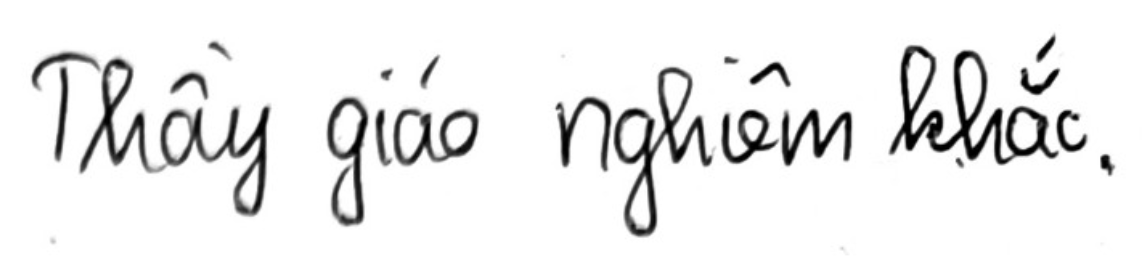 Thầy giáo nghiêm khắc.